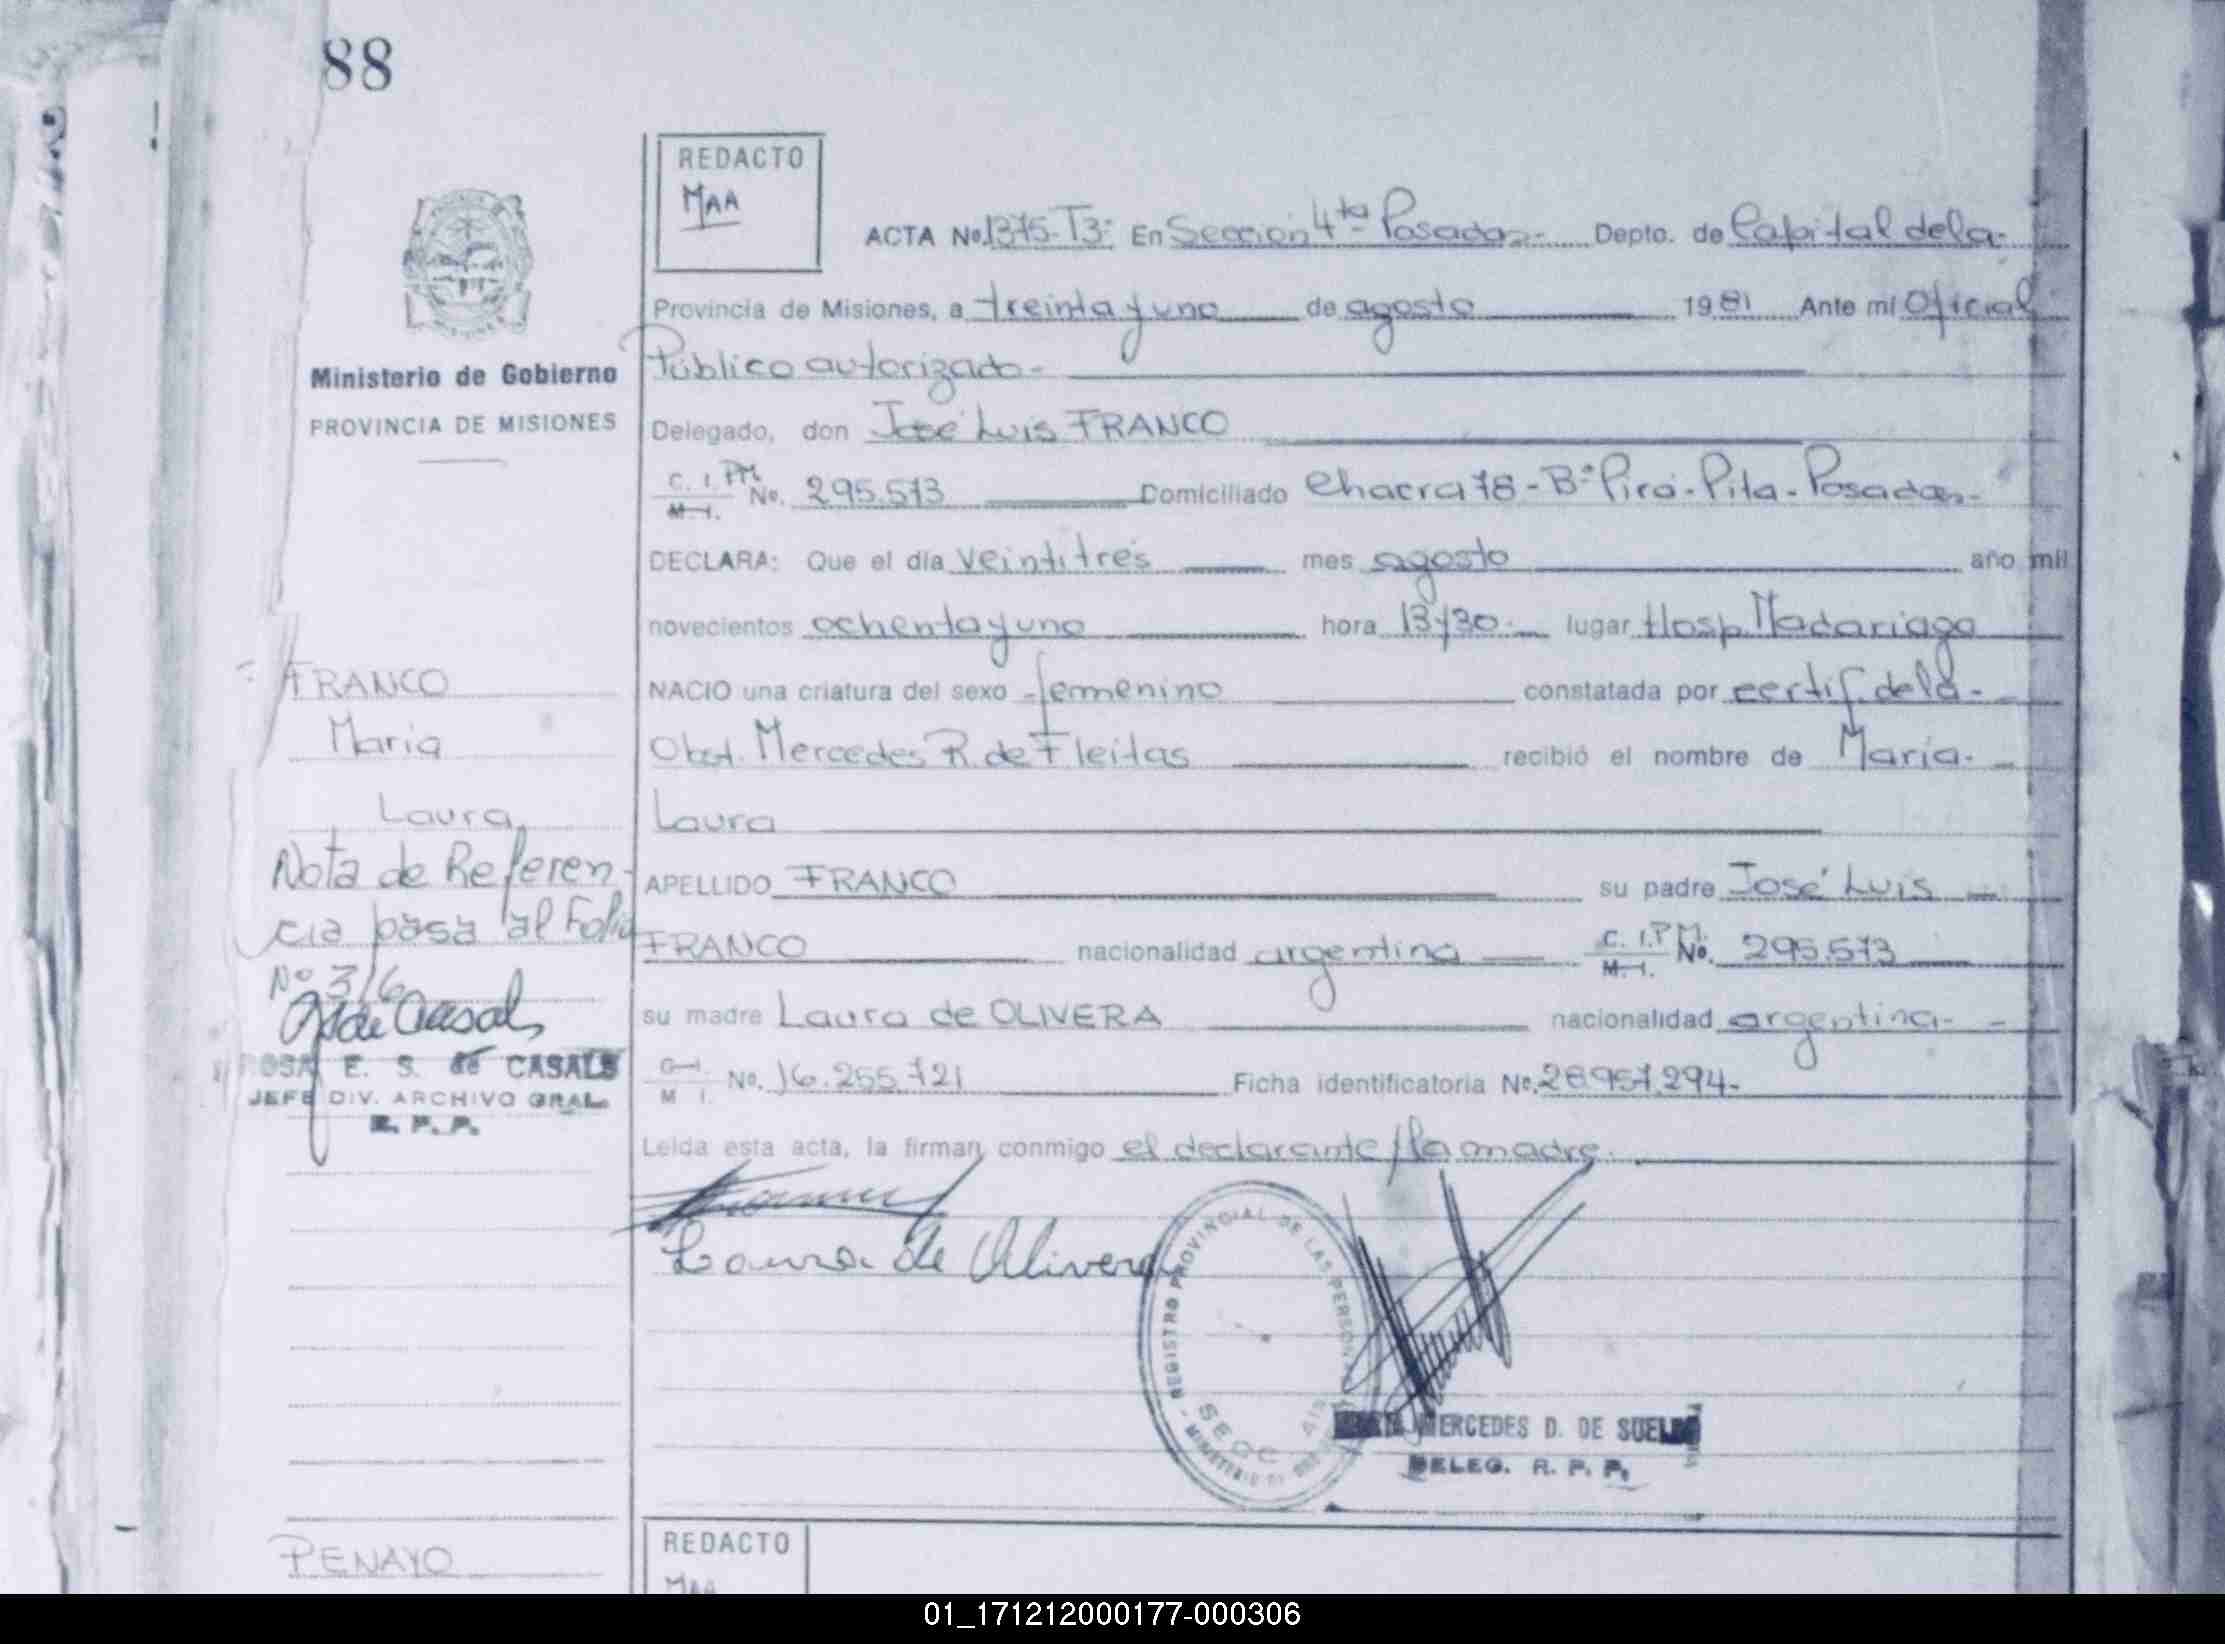 88
REDACTO
MAA
ACTA No. 1375-T3- En Sección 4ta Posadas- Depto. de Capital de la-
Provincia de Misiones, a treinta y uno de agosto 1981 Ante mi Oficial
Ministerio de Gobierno
PROVINCIA DE MISIONES
Público autorizado-
Delegado, don José Luis FRANCO
C. I. PM No. 295.573 Domiciliado Chacra 78 - Bº Pirá-Pitá - Posadas-
M. I.
DECLARA: Que el día veintitrés mes agosto año mil
novecientos ochenta y uno hora 13y30- lugar Hosp. Madariaga
FRANCO
NACIO una criatura del sexo femenino constatada por certif. de la-
María
Obst. Mercedes R. de Fleitas recibió el nombre de María-
Laura
Laura
Nota de Referen-
APELLIDO FRANCO su padre José Luis
cia pasa al Folio
FRANCO nacionalidad argentina C. I. P M. No. 295.573
M. I.
Nº 316
su madre Laura de OLIVERA nacionalidad argentina-
ROSA E. S. de CASALS
JEFE DIV. ARCHIVO GRAL.
R. P. P.
C. I. No. 16.255.721 Ficha identificatoria No. 28.957.294-
M I.
Leída esta acta, la firman conmigo el declarante y la madre.
Laura de Olivera
REGISTRO PROVINCIAL DE LAS PERSONAS
MERCEDES D. DE SUELDO
DELEG. R. P. P.
PENAYO
REDACTO
MAA
01_171212000177-000306